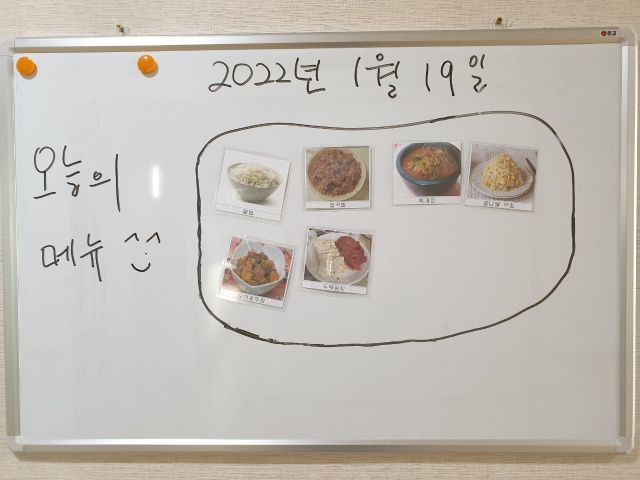 2022년 1월 19일
오늘의
메뉴 ^^
쌀밥
잡곡밥
육개장
콩나물 무침
두부김치